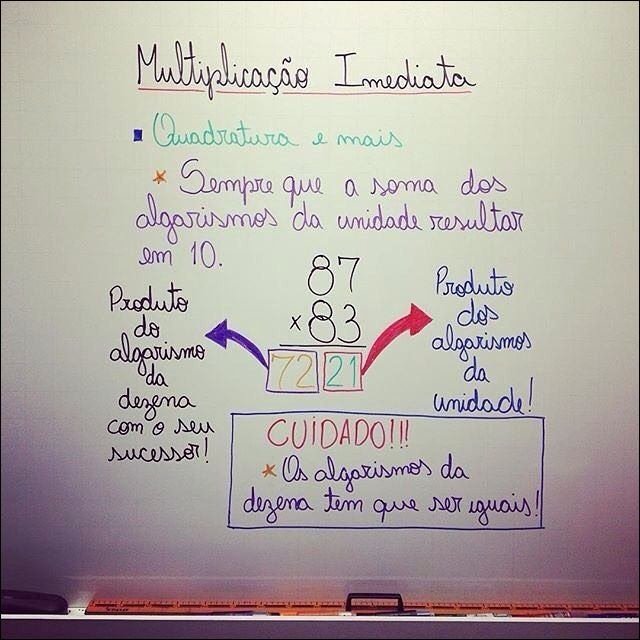 Multiplicação Imediata
Quadratura e mais
* Sempre que a soma dos
algarismos da unidade resultar
em 10.
87
x 83
72 21
Produto
do
algarismo
da
dezena
com o seu
sucessor!
Produto
dos
algarismos
da
unidade!
CUIDADO!!!
* Os algarismos da
dezena tem que ser iguais!